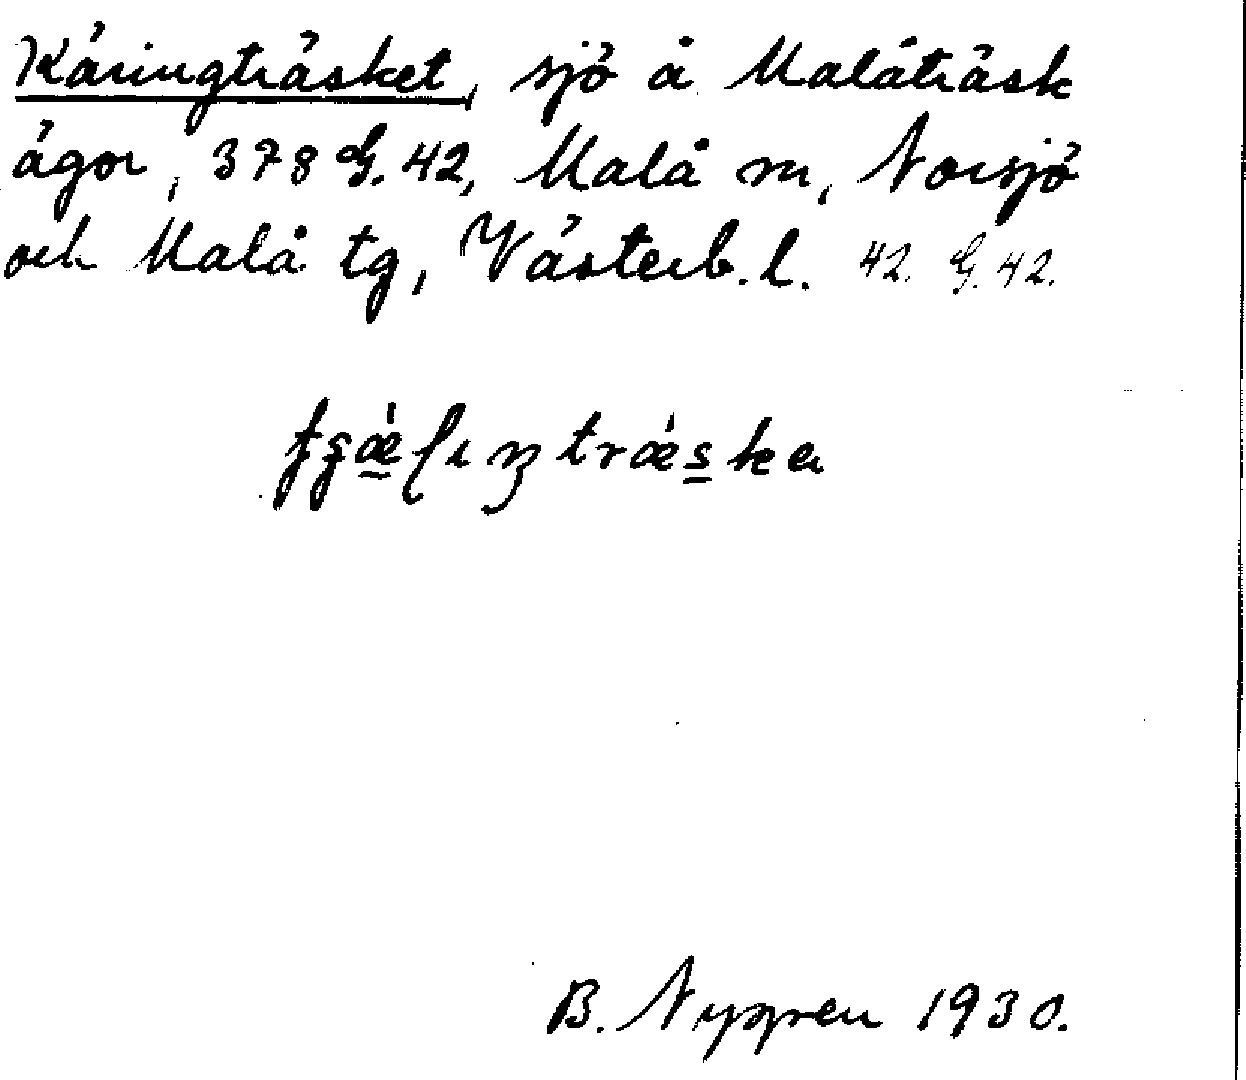 Käringträsket, sjö å Malåträsk
ägor, 378 G. 42, Malå sn, Norsjö
och Malå tg, Västerb. l. 42. G. 42.
B. Nygren 1930.